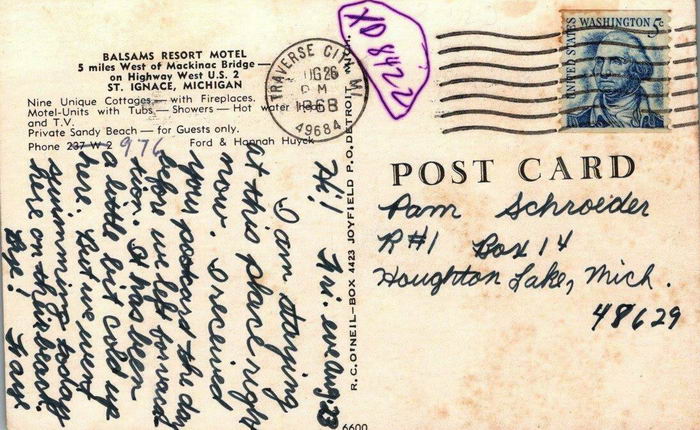 BALSAMS RESORT MOTEL
5 miles West of Mackinac Bridge—
on Highway West U.S. 2
ST. IGNACE, MICHIGAN
Nine Unique Cottages — with Fireplaces.
Motel-Units with Tubs — Showers — Hot water heat
and T.V.
Private Sandy Beach — for Guests only.
Phone 237 W 2 976 Ford & Hannah Huyck
TRAVERSE CITY, MI
AUG 26
PM
1968
49684
XD 8422
UNITED STATES
WASHINGTON 5c
POST CARD
Pam Schroeder
R#1 Box 14
Houghton Lake, Mich.
48629
R. C. O'NEIL-BOX 4423 JOYFIELD P.O. DETROIT,
6600
Hi! Fri. eve Aug 23
I am staying
at this place right
now. I received
your postcard the day
before we left for vacat
sion. It has been
a little bit cold up
here. But we went
swimming today
here on this beach.
Bye!